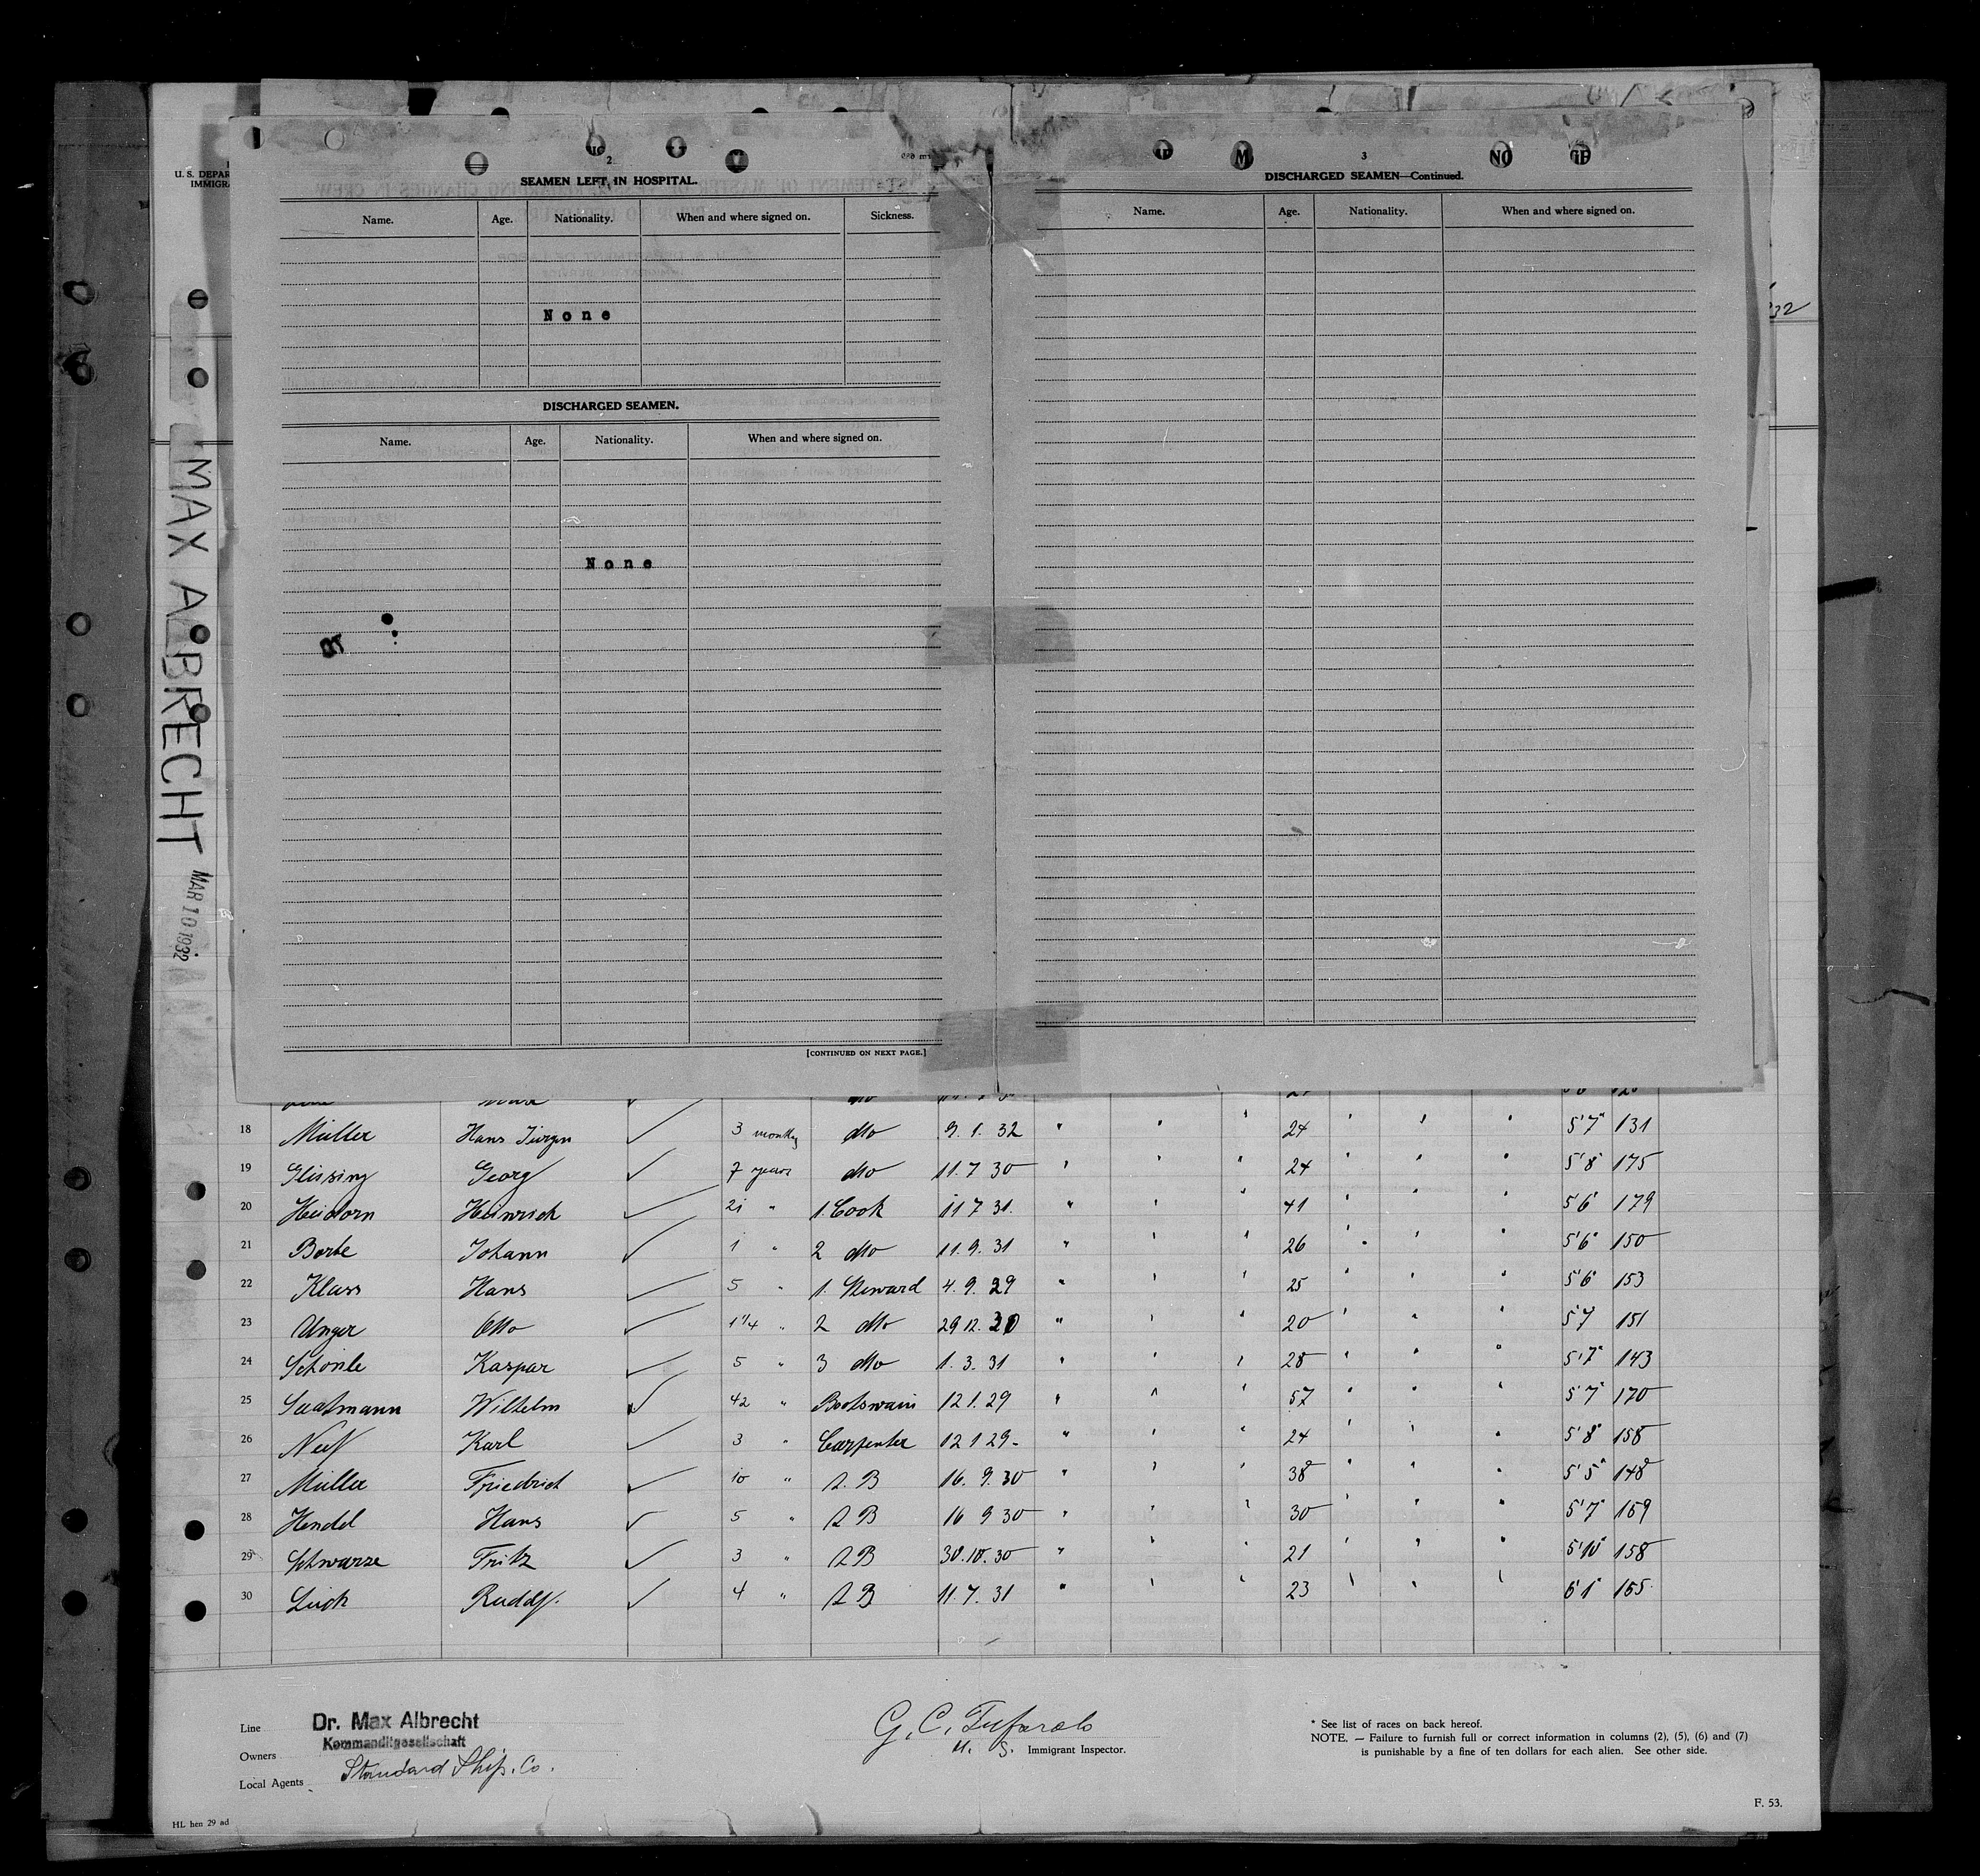 U. S. DEPAR
IMMIGRA
MAX ALBRECHT
MAR 10 1932
2
SEAMEN LEFT IN HOSPITAL.
Name. Age. Nationality. When and where signed on. Sickness.
None
DISCHARGED SEAMEN.
Name. Age. Nationality. When and where signed on.
None
[CONTINUED ON NEXT PAGE.]
3
DISCHARGED SEAMEN—Continued.
Name. Age. Nationality. When and where signed on.
32
18 Müller Hans Jürgen 3 months do 9. 1. 32 " " " 24 " " " 5'7" 131
19 Georg 7 years do 11. 7 30 " " " 24 " " " 5'8" 175
20 Heidorn Heinrich 21 " 1. Cook 11 7 31. " " " 41 " " " 5'6" 179
21 Johann 1 " 2 do 11. 9. 31 " " " 26 " " " 5'6" 150
22 Klass Hans 5 " 1. Steward 4. 9. 29 " " " 25 " " " 5'6" 153
23 Unger Otto 1 1/4 " 2 do 29 12. 30 " " " 20 " " " 5'7 151
24 Schönle Kaspar 5 " 3 do 1. 3. 31 " " " 28 " " " 5'7" 143
25 Saatmann Wilhelm 42 " Bootswain 12 1. 29 " " " 57 " " " 5'7" 170
26 Karl 3 " Carpenter 12 1 29- " " " 24 " " " 5'8" 158
27 Müller Friedrich 10 " A. B 16. 9. 30 " " " 38 " " " 5'5" 148
28 Hendel Hans 5 " A B 16 9 30 " " " 30 " " " 5'7" 159
29 Schwarze Fritz 3 " A B 30. 10. 30 " " " 21 " " " 5'10" 158
30 Rudolf. 4 " A B 11. 7. 31 " " " 23 " " " 6'1" 165
Line Dr. Max Albrecht
Kommanditgesellschaft
Owners
Local Agents Standard Ship. Co.
G. C.
U. S. Immigrant Inspector.
* See list of races on back hereof.
NOTE. — Failure to furnish full or correct information in columns (2), (5), (6) and (7)
is punishable by a fine of ten dollars for each alien. See other side.
F. 53.
HL hen 29 ad